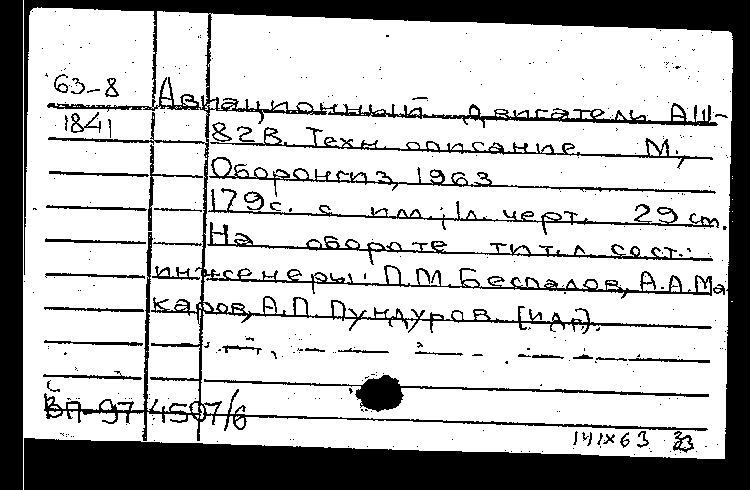 63-8 Авиационный двигатель АШ-
1841 82В. Техн. описание. М.,
Оборонгиз, 1963
179с. с илл.; 1л. черт. 29 см.
На обороте тит.л сост.:
инженеры: П.М. Беспалов, А.А.Ма
каров, А.П. Пундуров. [и др].
ВП-97 4507/6
141х63